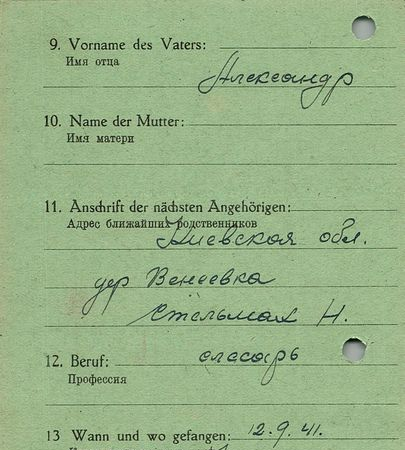 9. Vorname des Vaters:
Имя отца
Александр
10. Name der Mutter:
Имя матери
11. Anschrift der nächsten Angehörigen:
Адрес ближайших родственников
Киевская обл.
дер Венеевка
Стельмах Н.
12. Beruf: слесарь
Профессия
13 Wann und wo gefangen: 12.9.41.